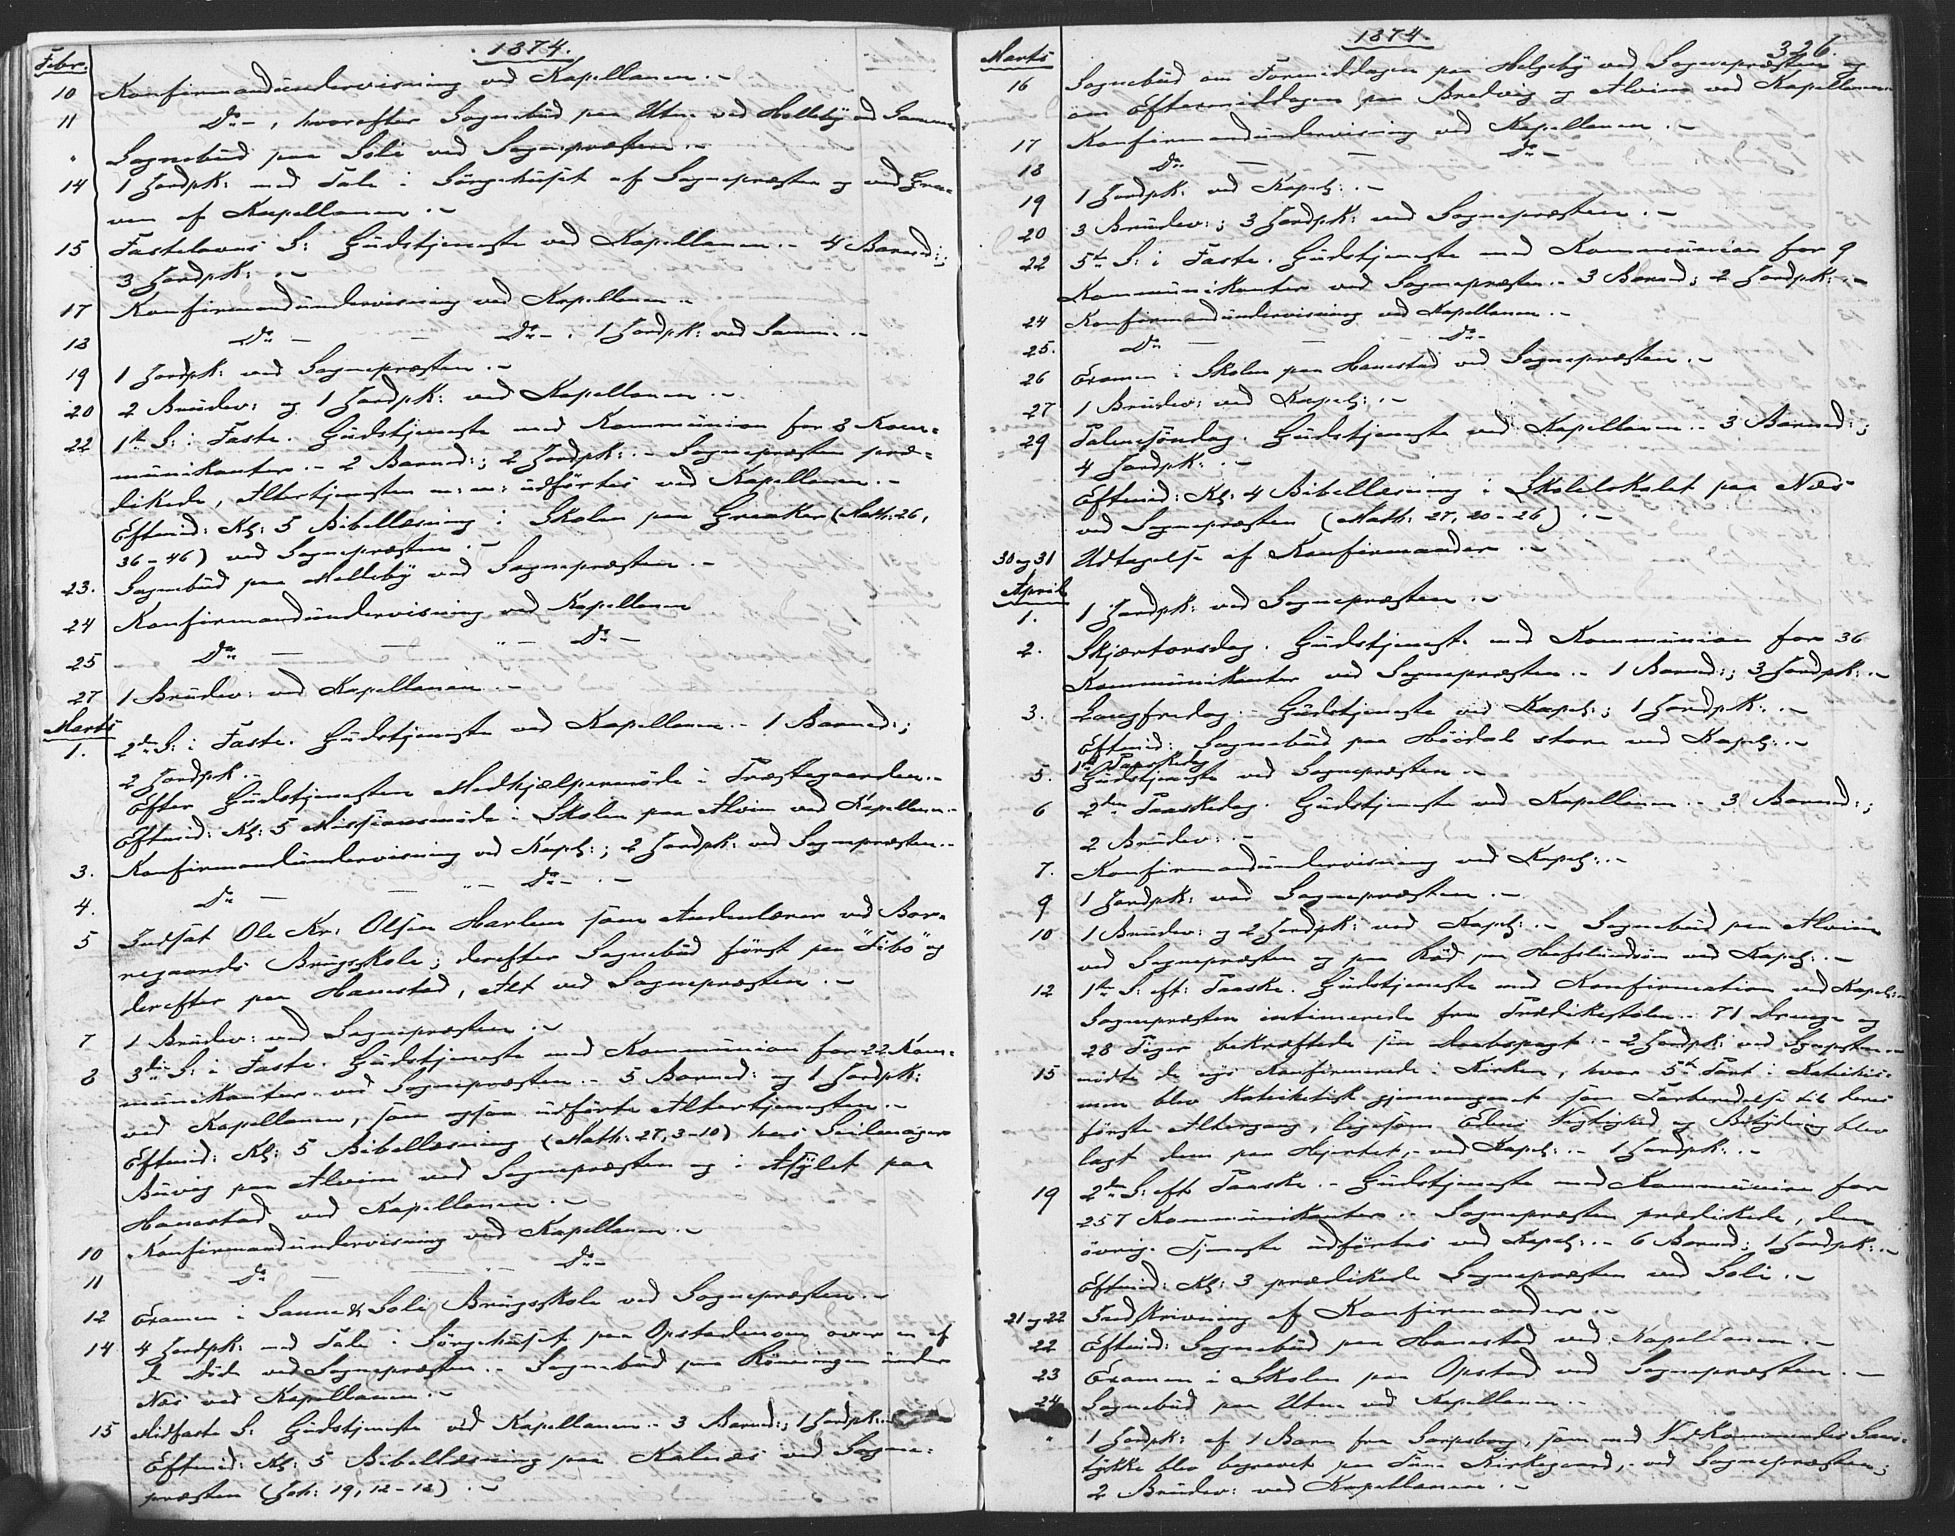 1874.
Febr.
10 Konfirmandundervisning ved Kapellanen.
11 Do – , hvorefter Sognebüd paa Utne ved Holleby ved Samme
" Sognebüd paa Soli ved Sognepræsten.
14 1 Jordpk: med Tale i Sörgehüset af Sognepræsten og ved Gra-
ven af Kapellanen.
15 Fastelavns S: Güdstjeneste ved Kapellanen. – 4 Barned:;
3 Jordpk:.
17 Konfirmandündervisning ved Kapellanen.
18 Do – – Do – : 1 Jordpk: ved Samme.
19 1 Jordpk: ved Sognepræsten.
20 2 Brüdev: og 1 Jordpk: ved Kapellanen.
22 1ste S: i Faste. Güdstjeneste med Kommünion for 8 Kom-
münikanter. – 2 Barned:; 2 Jordpk:. – Sognepræsten præ-
dikede, Altertjenesten m: m: üdförtes ved Kapellanen.
Eftmid: Kl: 5 Bibellæsning i Skolen paa Greaker (Math: 26,
36–46) ved Sognepræsten.
23. Sognebüd paa Melleby ved Sognepræsten.
24 Konfirmandündervisning ved Kapellanen
25 Do – – Do –
27 1 Brüdev: ved Kapellanen.
Marts
1. 2den S: i Faste. Güdstjeneste ved Kapellanen. – 1 Barned:;
2 Jordpk.
Efter Güdstjenesten Medhjælpermöde i Præstegaarden.
Eftmid: Kl: 5 Missionsmöde i Skolen paa Alvim ved Kapellanen.
3. Konfirmandündervisning ved Kapel:; 2 Jordpk: ved Sognepræsten.
4. Do – – Do –
5 Indsat Ole Kr: Olsen Harlem som Andenlærer ved Bor-
regaards Brügsskole; derefter Sognebüd först paa "Tibo" og
derefter paa Hanestad, Alt ved Sognepræsten.
7 1 Brüdev: ved Sognepræsten.
8 3die S: i Faste. Güdstjeneste med Kommünion for 22 Kom-
münikanter ved Sognepræsten. – 5 Barned: og 1 Jordpk:
ved Kapellanen, som ogsaa üdförte Altertjenesten.
Eftmid: Kl: 5 Bibellæsning (Math: 27, 3–10) hos Seilmager
Büvig paa Alvim ved Sognepræsten og i Asylet paa
Hanestad ved Kapellanen.
10 Konfirmandündervisning ved Kapellanen.
11 Do – – Do –
12 Examen i Sanne & Soli Brügsskole ved Sognepræsten.
14 4 Jordpk: med Tale i Sörgehüset paa Opstadmoen over en af
de Döde ved Sognepræsten. – Sognebüd paa Rönningen ünder
Næs ved Kapellanen.
15 Midfaste S: Güdstjeneste ved Kapellanen. 3 Barned:; 1 Jordpk:
Eftmid: Kl: 5 Bibellæsning paa Kalnæs ved Sogne-
præsten (Joh: 19, 12–18).
1874.
326.
Marts
16 Sognebüd om Formiddagen paa Helgeby ved Sognepræsten og
om Eftermiddagen paa Bredvig og Alvim ved Kapellanen.
17 Konfirmandündervisning ved Kapellanen.
18 Do – – Do –
19 1 Jordpk. ved Kapel:.
20 3 Brüdev:; 3 Jordpk: ved Sognepræsten.
22 5te S: i Faste. Güdstjeneste med Kommünion for 9
Kommünikanter ved Sognepræsten. 3 Barned; 2 Jordpk:.
24 Konfirmandündervisning ved Kapellanen.
25. Do – – Do –
26 Examen i Skolen paa Hanestad ved Sognepræsten.
27 1 Brüdev: ved Kapel:.
29 Palmesöndag. Güdstjeneste ved Kapellanen. 3 Barned:;
4 Jordpk:.
Eftmid: Kl: 4 Bibellæsning i Skolelokalet paa Næs
ved Sognepræsten (Math: 27, 20–26).
30 og 31 Udtagelse af Konfirmander.
April
1. 1 Jordpk: ved Sognepræsten.
2. Skjærtorsdag. Güdstjeneste med Kommünion for 36
Kommünikanter ved Sognepræsten. 1 Barned:; 3 Jordpk:.
3. Langfredag. Güdstjeneste ved Kapel:; 1 Jordpk:.
Eftmid: Sognebüd paa Höidal store ved Kapel:.
1ste Paaskedag
5. Güdstjeneste ved Sognepræsten.
6 2den Paaskedag. Güdstjeneste ved Kapellanen. 3 Barned:;
2 Brüdev:.
7. Konfirmandündervisning ved Kapel:.
9 1 Jordpk: ved Sognepræsten.
10 1 Brüdev: og 2 Jordpk: ved Kapel:. Sognebüd paa Alvim
ved Sognepræsten og paa Röd paa Hafslundsöen ved Kapel:.
12 1ste S: eft: Paaske. Güdstjeneste med Konfirmation ved Kapel:.
Sognepræsten intimerede fra Prædikestolen. 71 Drenge og
28 Piger bekræftede sin Daabspagt. – 2 Jordpk: ved Sgpsten.
15 mödte de nys Konfirmerede i Kirken, hvor 5te Part i Katekis-
men blev Kateketisk gjennemgaaet som Forberedelse til deres
förste Altergang, ligesom Edens Vigtighed og Betydning blev
lagt dem paa Hjertet, ved Kapel:. 1 Jordpk:.
19 2den S: eft Paaske. Güdstjeneste med Kommünion for
257 Kommünikanter. Sognepræsten prædikede, den
övrige Tjeneste üdförtes ved Kapel:. 6 Barned; 1 Jordpk:.
Eftmid: Kl: 3 prædikede Sognepræsten ved Soli.
21 og 22 Indskrivning af Konfirmander.
22 Eftmid: Sognebüd paa Hanestad ved Kapellanen.
23 Examen i Skolen paa Opstad ved Sognepræsten.
24 Sognebüd paa Utne ved Kapellanen.
" 1 Jordpk: af 1 Barn fra Sarpsborg, som med Vedkommendes Sam-
tykke blev begravet paa Tüne Kirkegaard, ved Sognepræsten;
2 Brüdev: ved Kapellanen.